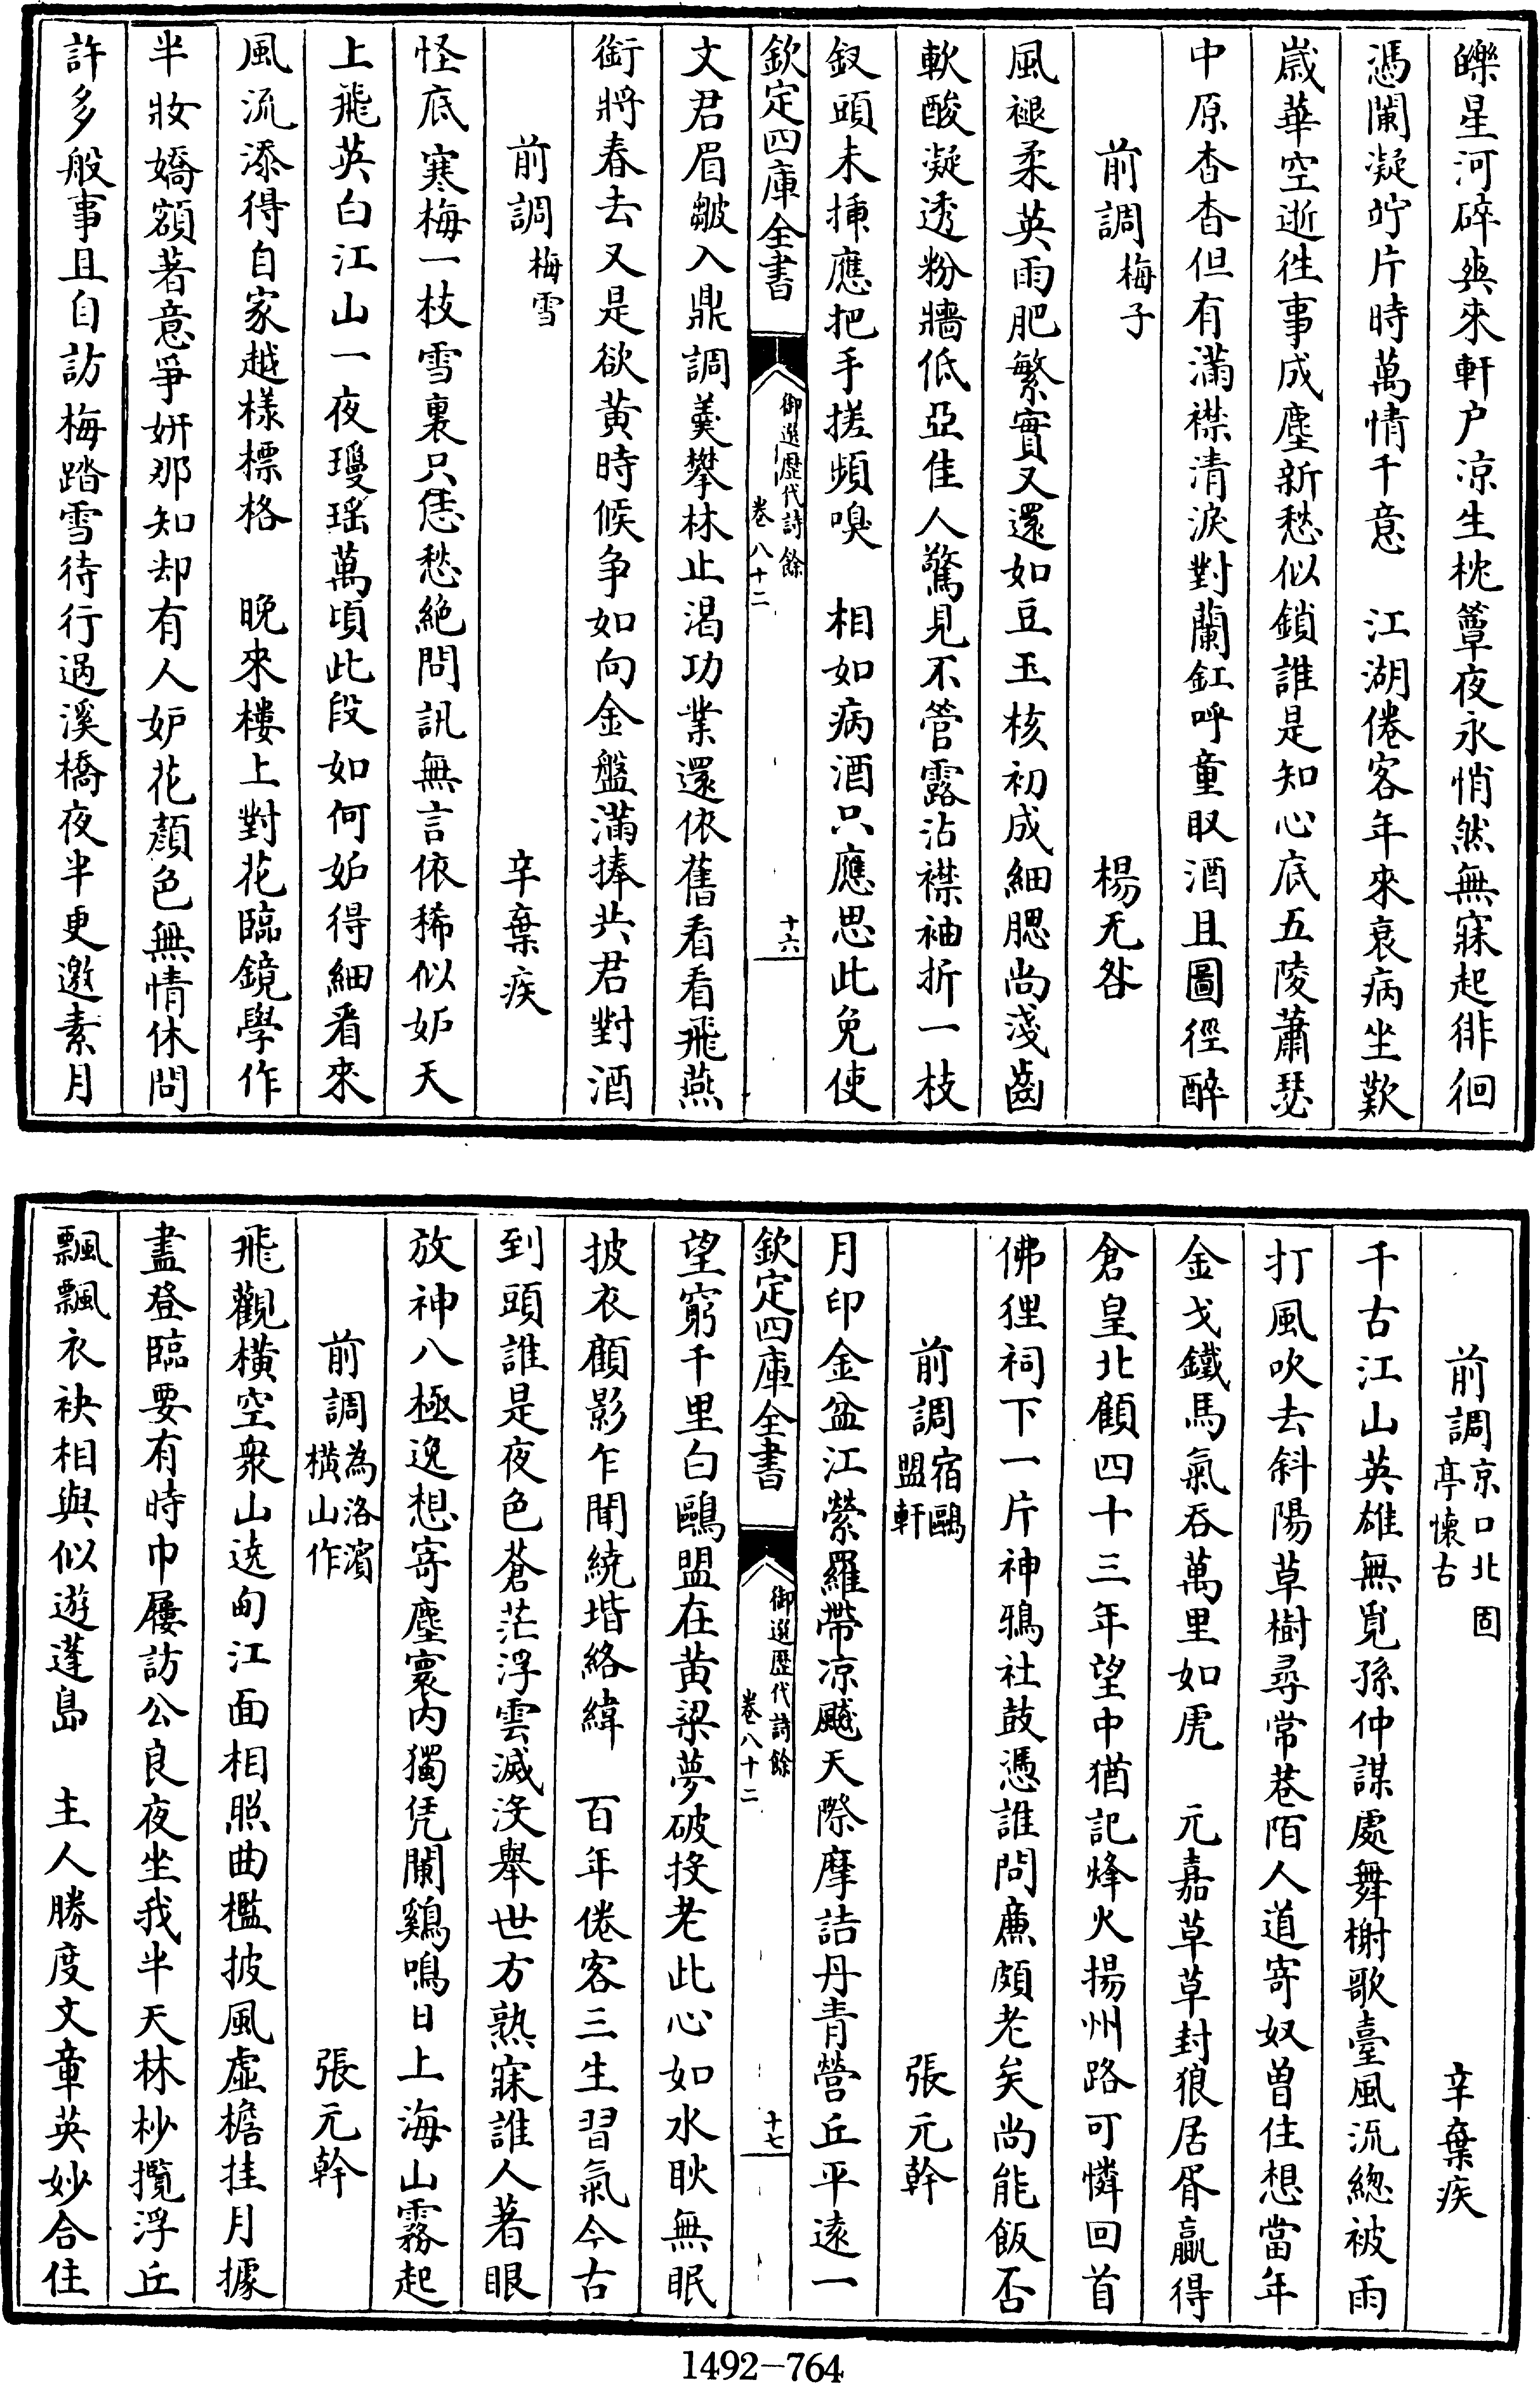 皪星河碎爽來軒户凉生枕簟夜永悄然無寐起徘徊
憑闌凝竚片時萬情千意　江湖倦客年來衰病坐歎
嵗華空逝徃事成塵新愁似鎖誰是知心底五陵蕭瑟
中原杳杳但有滿襟清淚對蘭釭呼童取酒且圖徑醉
前調梅子　楊无咎
風褪柔英雨肥繁實又還如豆玉核初成細腮尚淺齒
軟酸凝透粉牆低亞佳人驚見不管露沾襟袖折一枝
釵頭未揷應把手挼頻嗅　相如病酒只應思此免使
欽定四庫全書　御選歷代詩餘　卷八十二　十六
文君眉皺入鼎調羹攀林止渴功業還依舊看看飛燕
銜將春去又是欲黄時候争如向金盤滿捧共君對酒
前調梅雪　辛棄疾
怪底寒梅一枝雪裏只恁愁絶問訊無言依稀似妒天
上飛英白江山一夜瓊瑶萬頃此段如何妬得細看來
風流添得自家越樣標格　晚來樓上對花臨鏡學作
半妝嬌額著意爭妍那知却有人妒花顔色無情休問
許多般事且自訪梅踏雪待行過溪橋夜半更邀素月
前調京口北固亭懷古　辛棄疾
千古江山英雄無覓孫仲謀處舞榭歌臺風流總被雨
打風吹去斜陽草樹尋常巷陌人道寄奴曽住想當年
金戈鐵馬氣吞萬里如虎　元嘉草草封狼居胥贏得
倉皇北顧四十三年望中猶記烽火揚州路可憐回首
佛狸祠下一片神鴉社鼓憑誰問亷頗老矣尚能飯否
前調宿鷗盟軒　張元幹
月印金盆江縈羅帶凉飈天際摩詰丹青營丘平逺一
欽定四庫全書　御選歷代詩餘　卷八十二　十七
望窮千里白鷗盟在黄粱夢破投老此心如水耿無眠
披衣顧影乍聞繞堦絡緯　百年倦客三生習氣今古
到頭誰是夜色蒼茫浮雲滅没舉世方熟寐誰人著眼
放神八極逸想寄塵寰内獨凭闌鷄鳴日上海山霧起
前調為洛濱横山作　張元幹
飛觀橫空衆山遶甸江面相照曲檻披風虚檐挂月據
盡登臨要有時巾屨訪公良夜坐我半天林杪攬浮丘
飄飄衣袂相與似遊蓬島　主人勝度文章英妙合住
1492—764